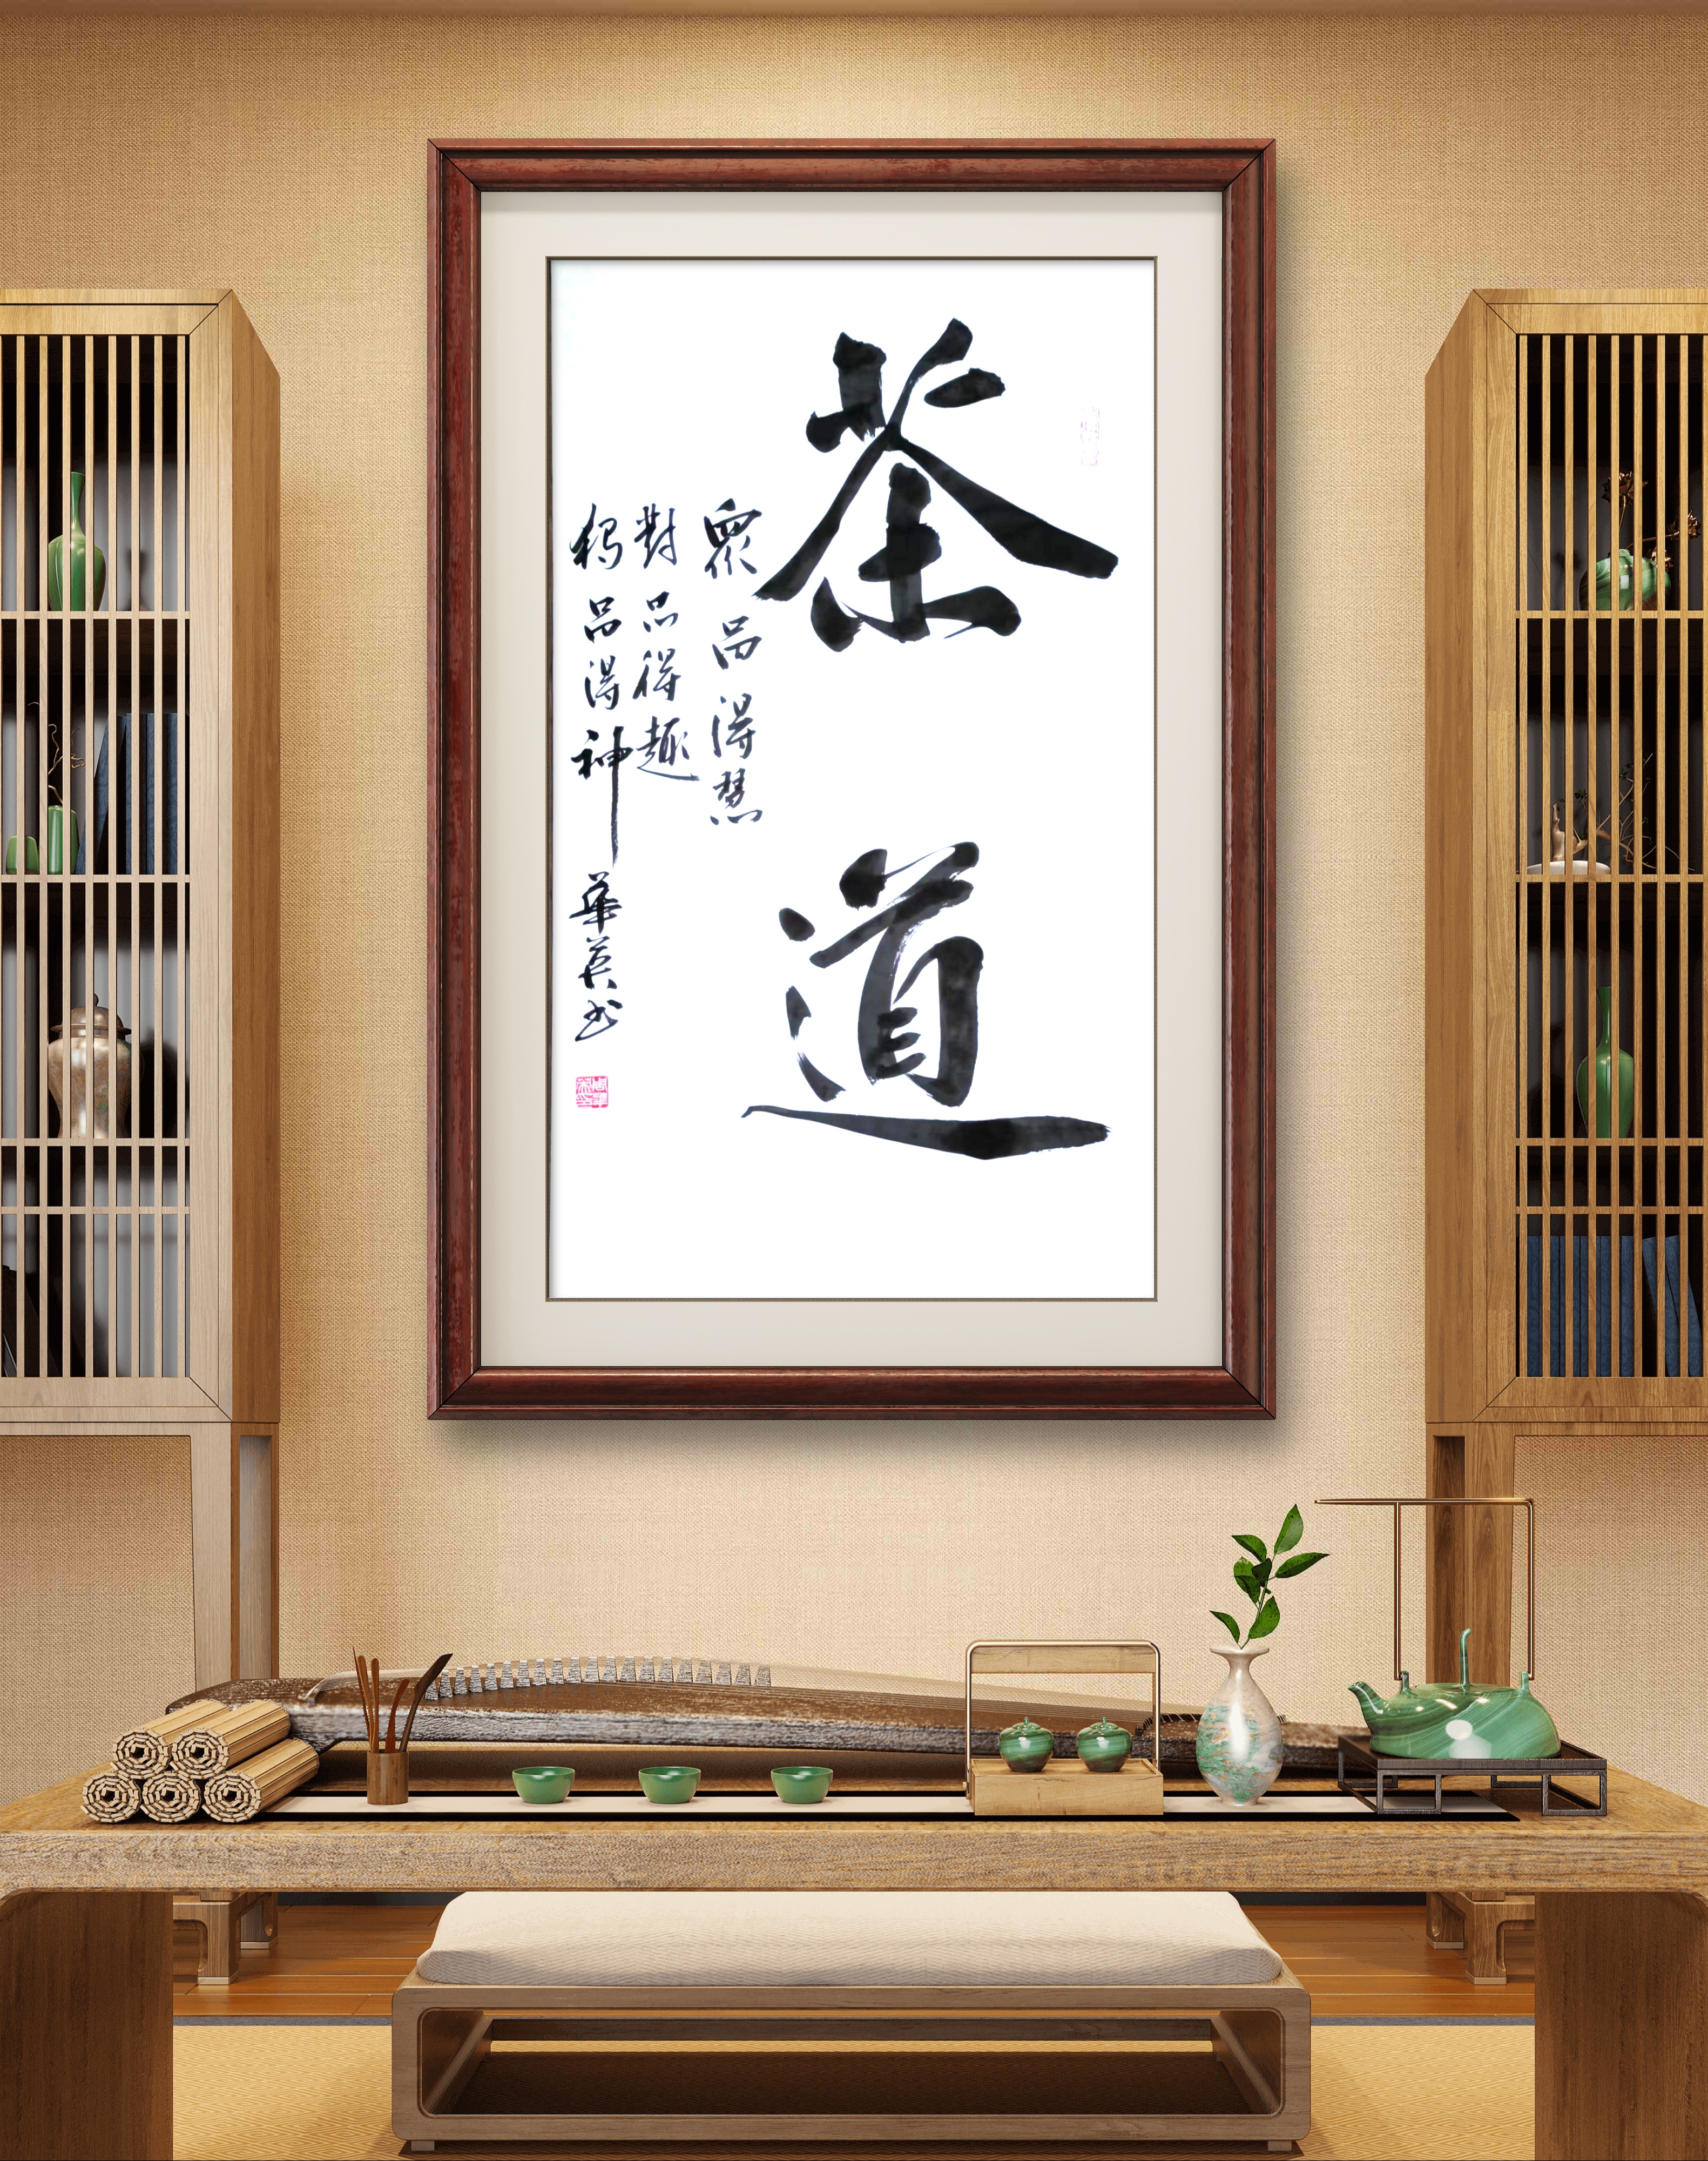 茶道
眾品得慧
對品得趣
獨品得神
華英书